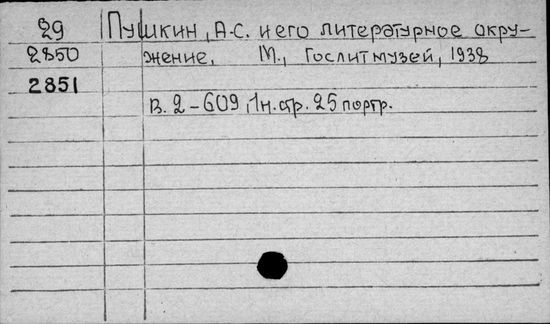 29 Пушкин, А.С. и его литературное окру-
2850 жение, М., Гослитмузей, 1938
2851
В. 2-609, 1н. стр. 25 портр.